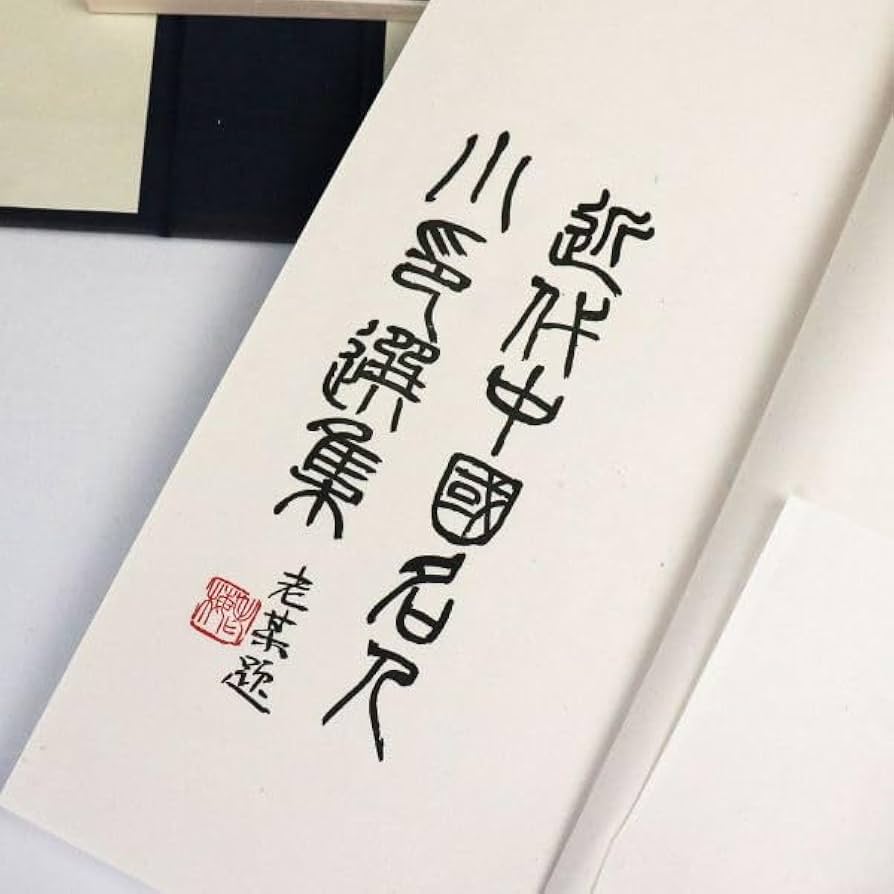 近代中國名人
小印選集
老某題